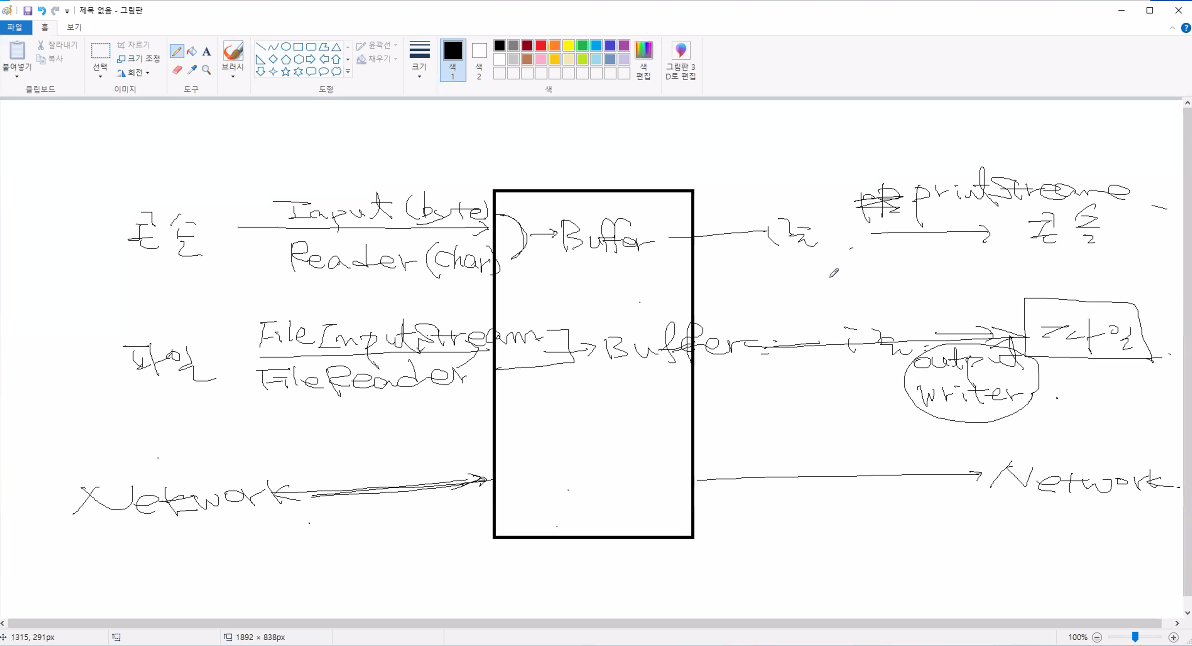 제목 없음 - 그림판
파일
홈
보기
붙여넣기
잘라내기
복사
클립보드
선택
자르기
크기 조정
회전
이미지
A
도구
브러시
윤곽선
채우기
도형
크기
색
1
색
2
색
편집
색
그림판 3
D로 편집
printStreame
Input (byte)
Reader (char)
Buffer
FileInputStream
FileReader
Buffer
output
writer
Network
Network
1315, 291px
1892 × 838px
100%